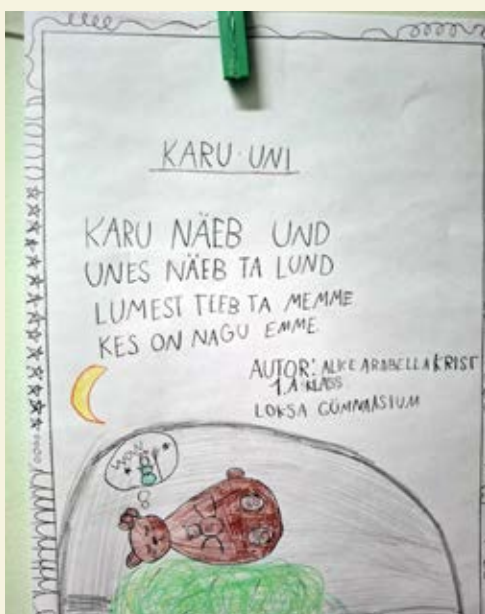 KARU UNI
KARU NÄEB UND
UNES NÄEB TA LUND
LUMEST TEEB TA MEMME
KES ON NAGU EMME.
AUTOR: ALICE ARABELLA KRIST
1.A KLASS
LOKSA GÜMNAASIUM
WOW